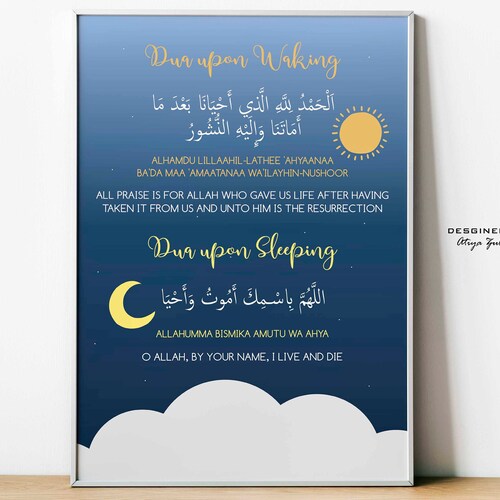 Dua upon Waking
اَلْحَمْدُ لِلَّهِ الَّذِي أَحْيَانَا بَعْدَ مَا
أَمَاتَنَا وَإِلَيْهِ النُّشُورُ
ALHAMDU LILLAAHIL-LATHEE 'AHYAANAA
BA'DA MAA 'AMAATANAA WA'ILAYHIN-NUSHOOR
ALL PRAISE IS FOR ALLAH WHO GAVE US LIFE AFTER HAVING
TAKEN IT FROM US AND UNTO HIM IS THE RESURRECTION
Dua upon Sleeping
اللَّهُمَّ بِاسْمِكَ أَمُوتُ وَأَحْيَا
ALLAHUMMA BISMIKA AMUTU WA AHYA
O ALLAH, BY YOUR NAME, I LIVE AND DIE
DESGINE
Atiya